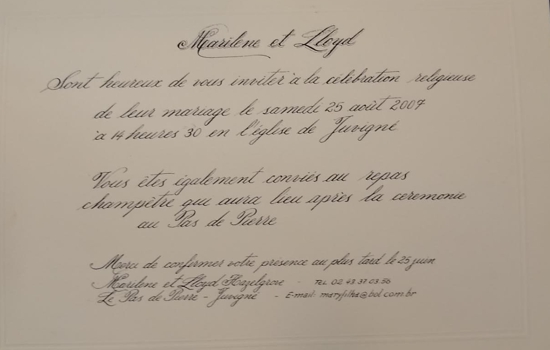 Marilene et Lloyd
Sont heureux de vous inviter à la célébration religieuse
de leur mariage le samedi 25 août 2007
à 14 heures 30 en l'église de Juvigné
Vous êtes également conviés au repas
champêtre qui aura lieu après la ceremonie
au Pas de Pierre
Merci de confirmer votre présence au plus tard le 25 juin
Marilene et Lloyd Hazelgrove - TEL 02 43 37 03 56
Le Pas de Pierre - Juvigné - E-mail: maryfilha@bol.com.br